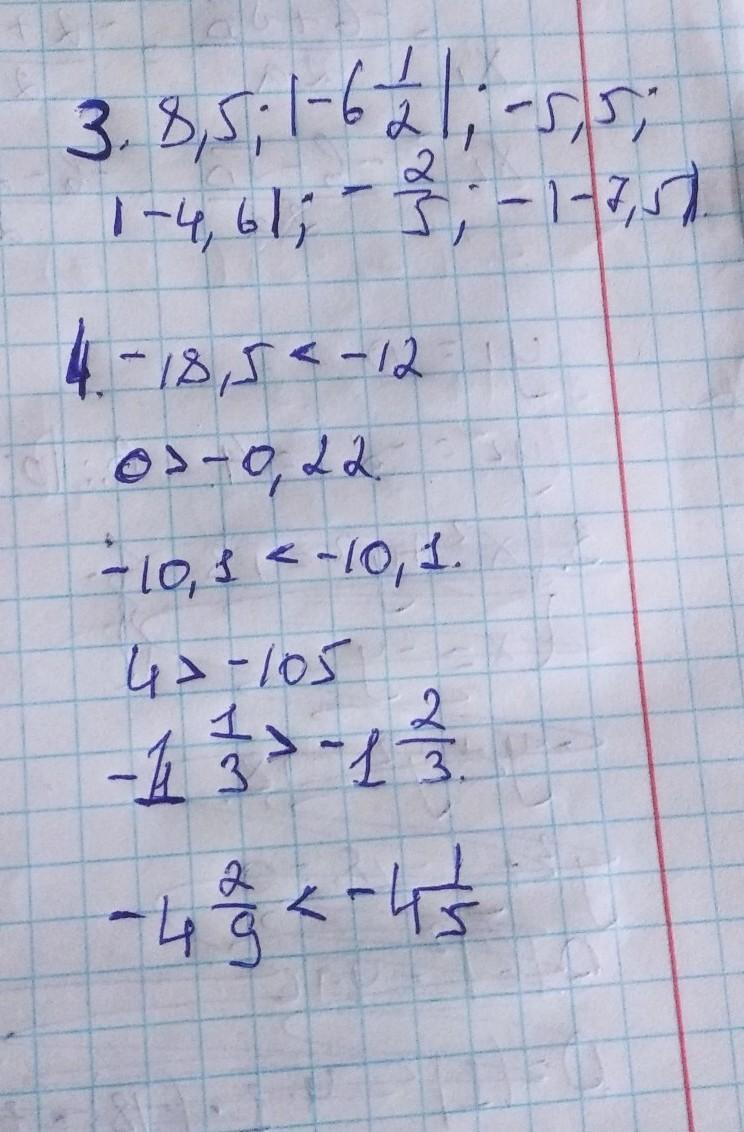 3. 8,5; |-6 1/2|; -5,5;
|-4,6|; - 2/5; -|-7,5|.
4. -18,5 < -12
0 > -0,22.
-10,1 < -10,1.
4 > -105
-1 1/3 > -1 2/3.
-4 2/9 < -4 1/5